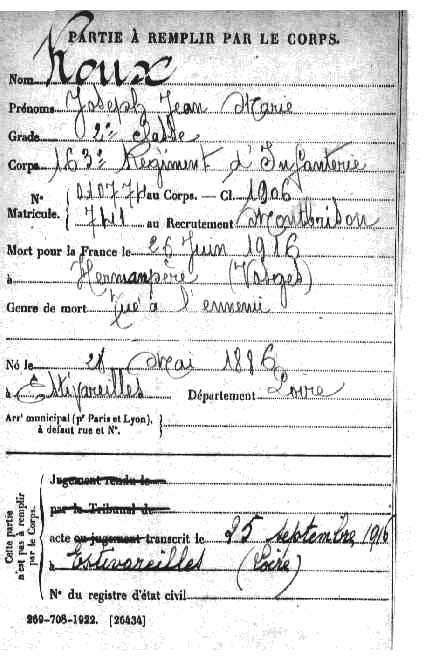 PARTIE À REMPLIR PAR LE CORPS.
Nom Roux
Prénoms Joseph Jean Marie
Grade 2e classe
Corps 163e Régiment d'Infanterie
N° au Corps. — Cl. 1906
Matricule. 741 au Recrutement Montbrison
Mort pour la France le 26 Juin 1916
à Hermanpère (Vosges)
Genre de mort Tué à l'ennemi
Né le Mai 1886
à Estivareilles Département Loire
Arrt municipal (pr Paris et Lyon),
à défaut rue et N°.
Cette partie
n'est pas à remplir
par le Corps.
Jugement rendu le
par le Tribunal de
acte ou jugement transcrit le 25 septembre 1916
à Estivareilles (Loire)
N° du registre d'état civil
269-708-1922. [26434]